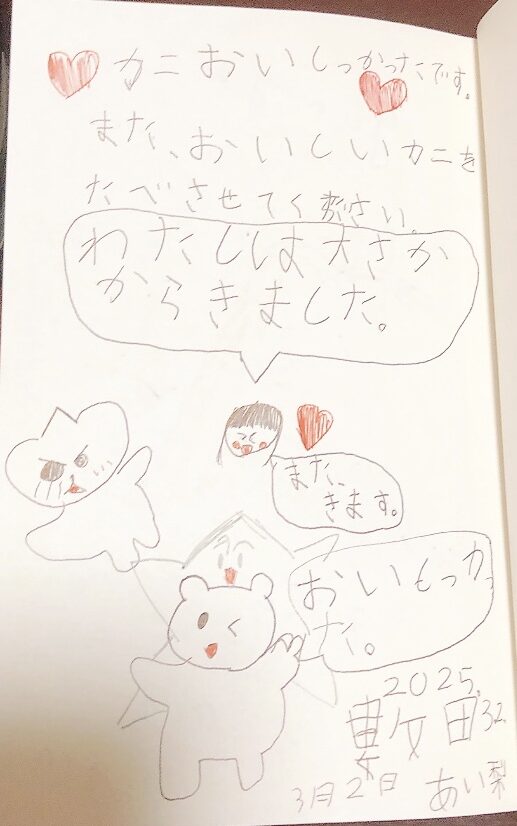 カニおいしかったです。
また、おいしいカニを
たべさせてください。
わたしは大さか
からきました。
また、
きます。
おいしかっ
た。
2025.
田
3月2日 あい梨